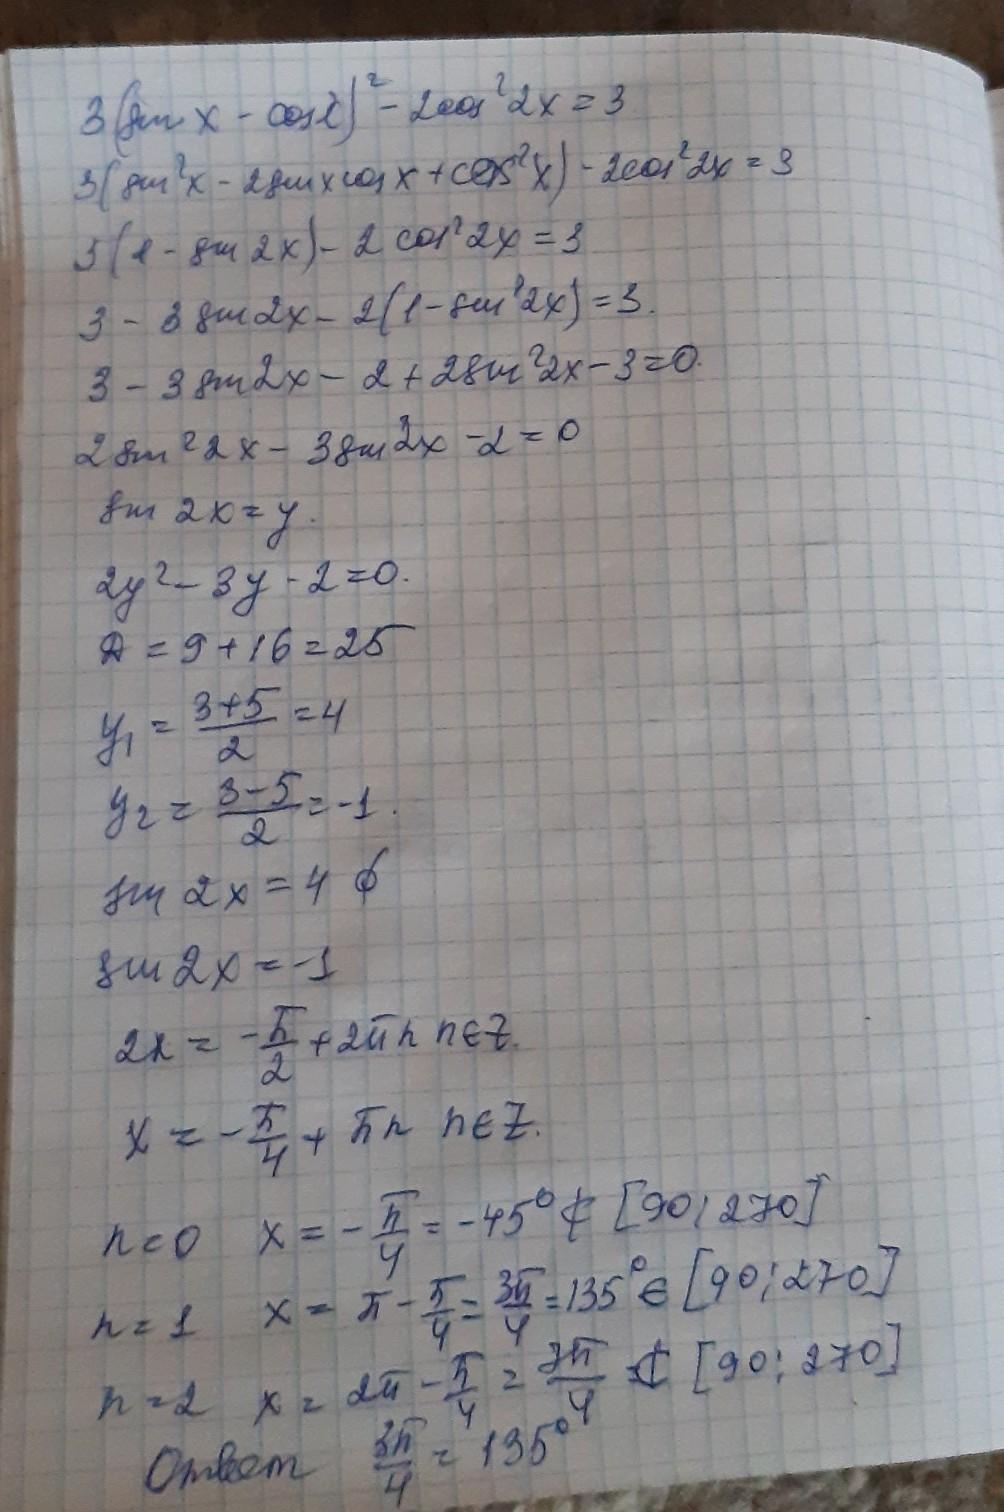 3(sin x - cos x)² - 2cos²2x = 3
3(sin²x - 2sin x cos x + cos²x) - 2cos²2x = 3
3(1 - sin 2x) - 2 cos²2x = 3
3 - 3 sin 2x - 2(1 - sin²2x) = 3.
3 - 3 sin 2x - 2 + 2sin²2x - 3 = 0.
2 sin²2x - 3 sin 2x - 2 = 0
sin 2x = y.
2y² - 3y - 2 = 0.
D = 9 + 16 = 25
y₁ = (3+5)/2 = 4
y₂ = (3-5)/2 = -1.
sin 2x = 4 ∅
sin 2x = -1
2x = -π/2 + 2πn n∈Z.
x = -π/4 + πn n∈Z.
n=0 x = -π/4 = -45° ∉ [90; 270]
n=1 x = π - π/4 = 3π/4 = 135° ∈ [90; 270]
n=2 x = 2π - π/4 = 7π/4 ∉ [90; 270]
Ответ 3π/4 = 135°